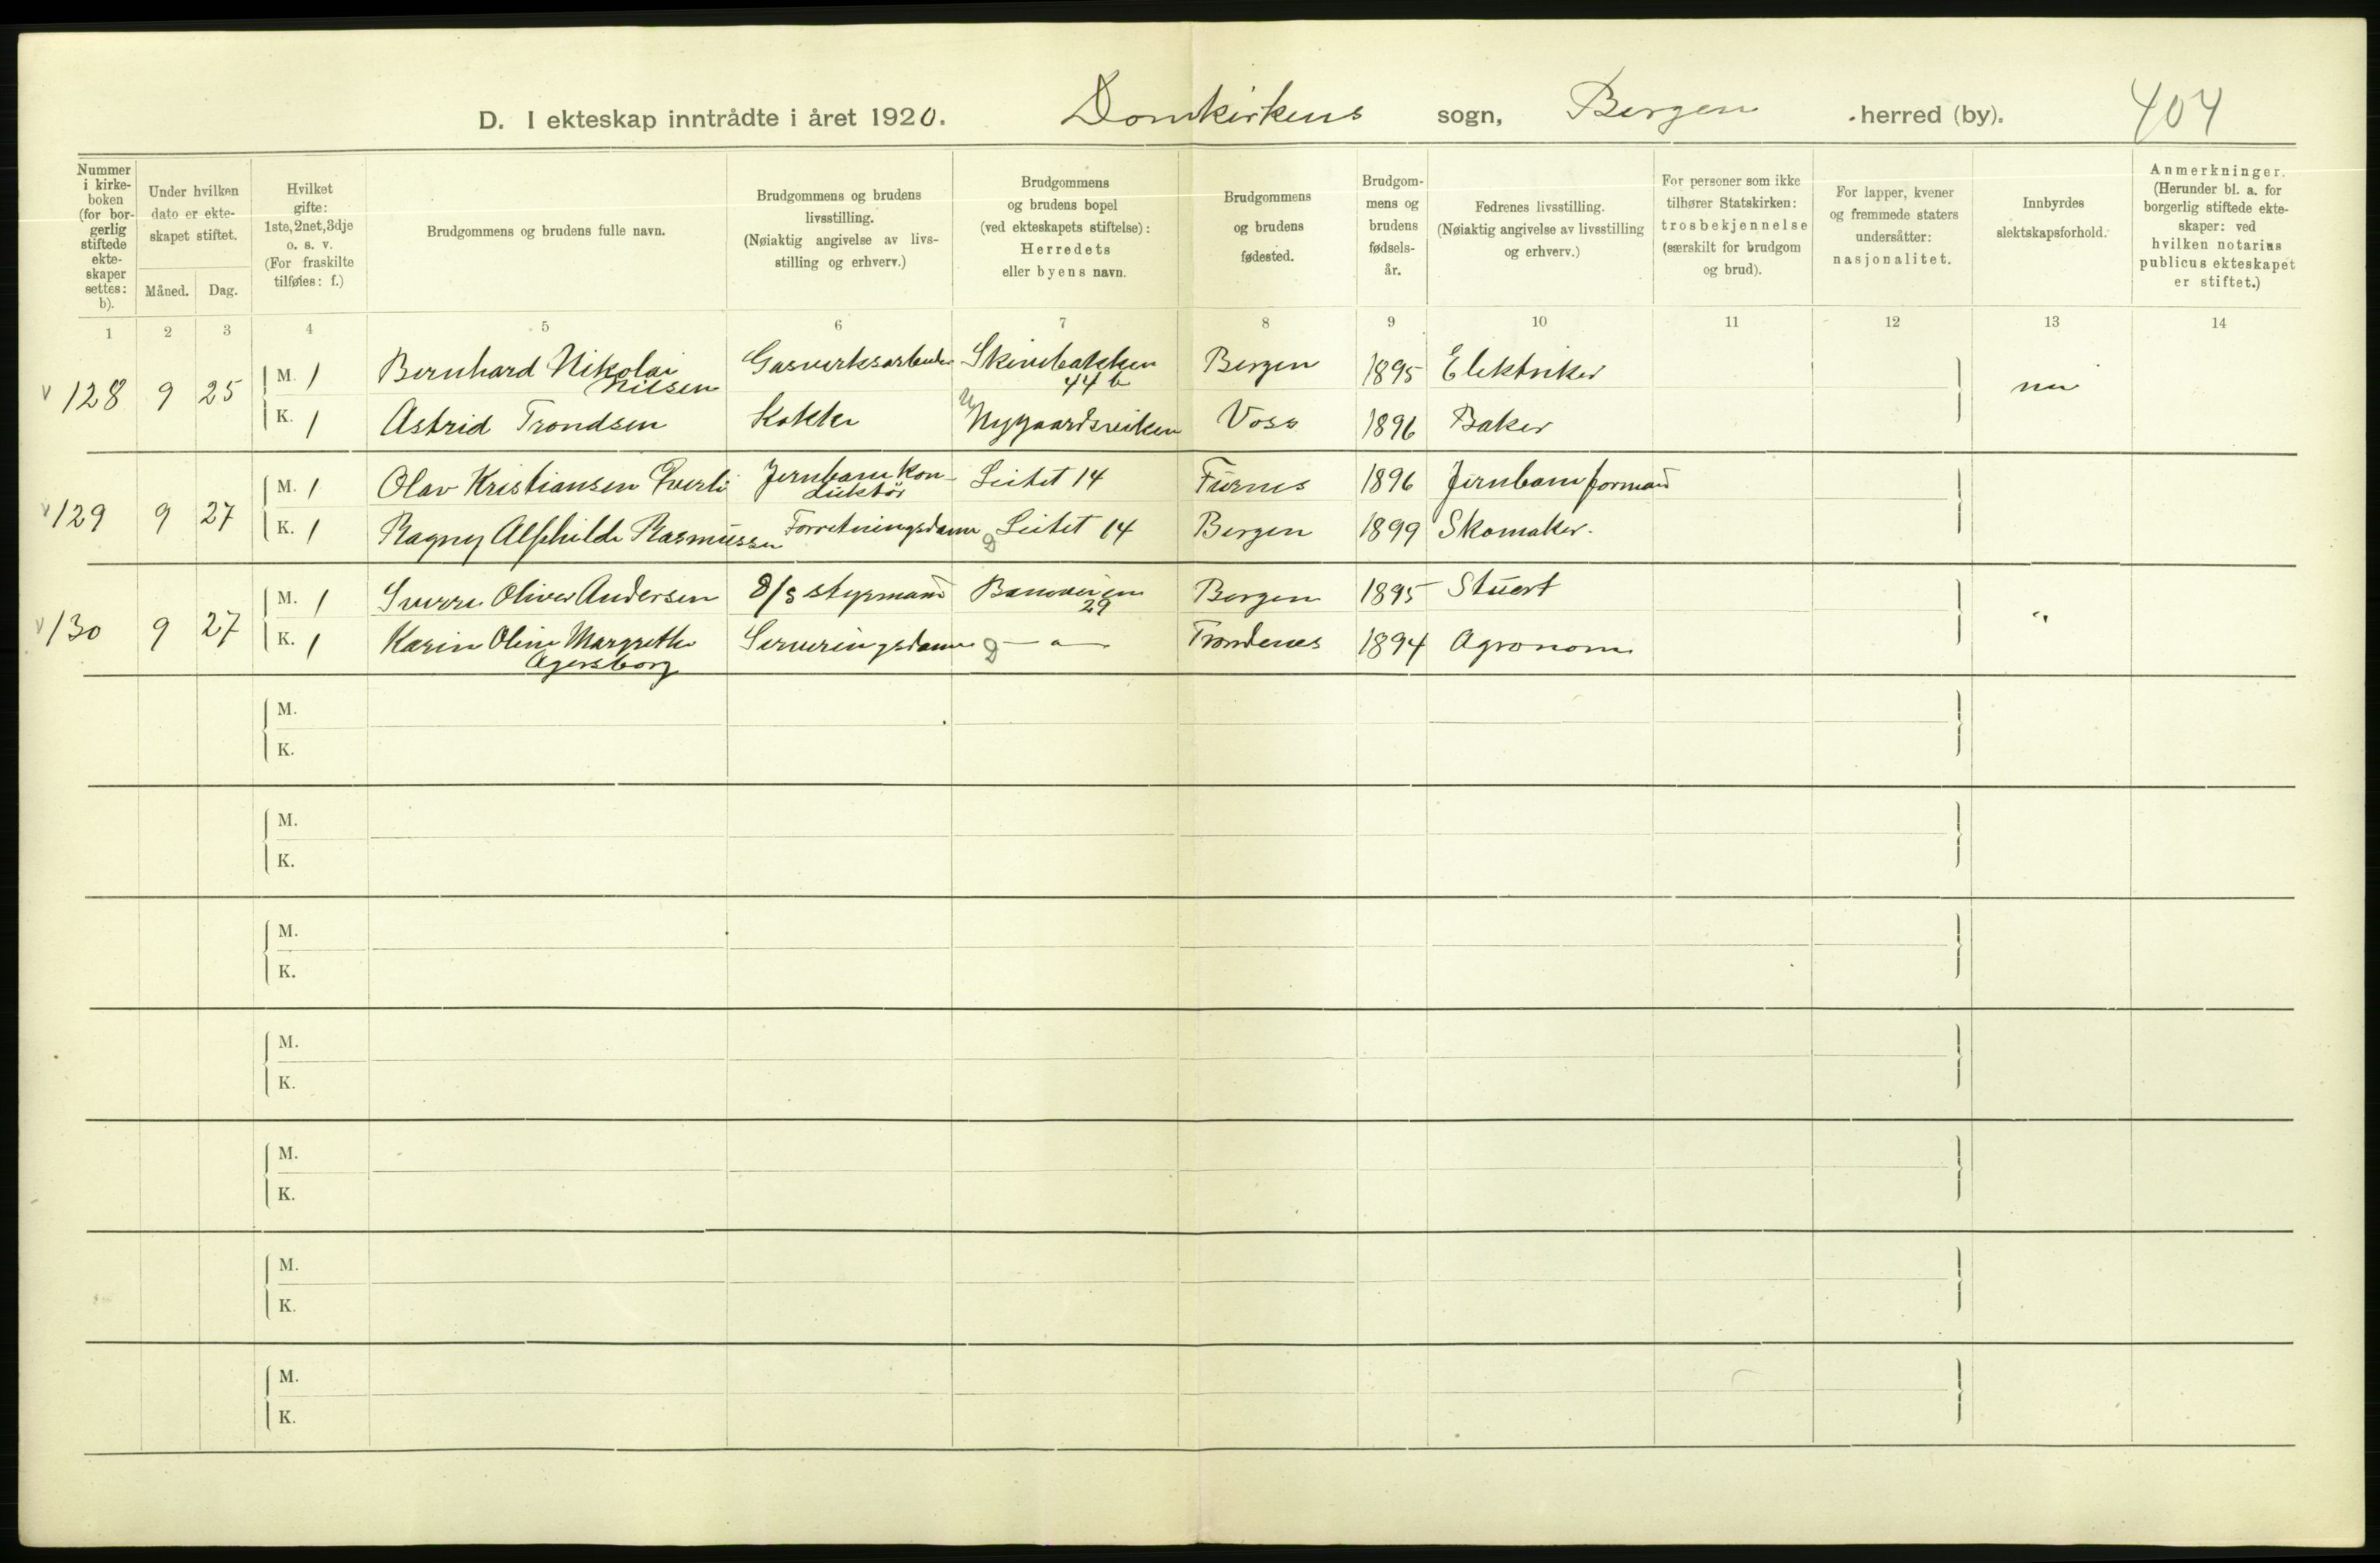 D. I ekteskap inntrådte i året 1920. Domkirkens sogn, Bergen herred (by). 404
Nummer i kirke-boken (for bor-gerlig stiftede ekte-skaper settes: b).
Under hvilken dato er ekte-skapet stiftet.
Måned. Dag.
Hvilket gifte: 1ste, 2net, 3dje o. s. v. (For fraskilte tilføies: f.)
Brudgommens og brudens fulle navn.
Brudgommens og brudens livsstilling. (Nøiaktig angivelse av livs-stilling og erhverv.)
Brudgommens og brudens bopel (ved ekteskapets stiftelse): Herredets eller byens navn.
Brudgommens og brudens fødested.
Brudgom-mens og brudens fødsels-år.
Fedrenes livsstilling. (Nøiaktig angivelse av livsstilling og erhverv.)
For personer som ikke tilhører Statskirken: trosbekjennelse (særskilt for brudgom og brud).
For lapper, kvener og fremmede staters undersåtter: nasjonalitet.
Innbyrdes slektskapsforhold.
Anmerkninger. (Herunder bl. a. for borgerlig stiftede ekte-skaper: ved hvilken notarius publicus ekteskapet er stiftet.)
1 2 3 4 5 6 7 8 9 10 11 12 13 14
v 128 9 25 M. 1 Bernhard Nikolai Nilsen Gasverksarbeider Skivebakken 44 b Bergen 1895 Elektriker nei
K. 1 Astrid Trondsen Kokke Nygaardsveiken Voss 1896 Baker
v 129 9 27 M. 1 Olav Kristiansen Jernbanekon-duktør Leitet 14 Furnes 1896 Jernbaneformand
K. 1 Ragny Alfhilde Rasmussen Forretningsdame Leitet 14 Bergen 1899 Skomaker.
v 130 9 27 M. 1 Sverre Oliver Andersen D/S styrmand 29 Bergen 1895 Stuert "
K. 1 Karin Oline Margrethe Agersborg Serveringsdame — " — Trondenes 1894 Agronom
M.
K.
M.
K.
M.
K.
M.
K.
M.
K.
M.
K.
M.
K.